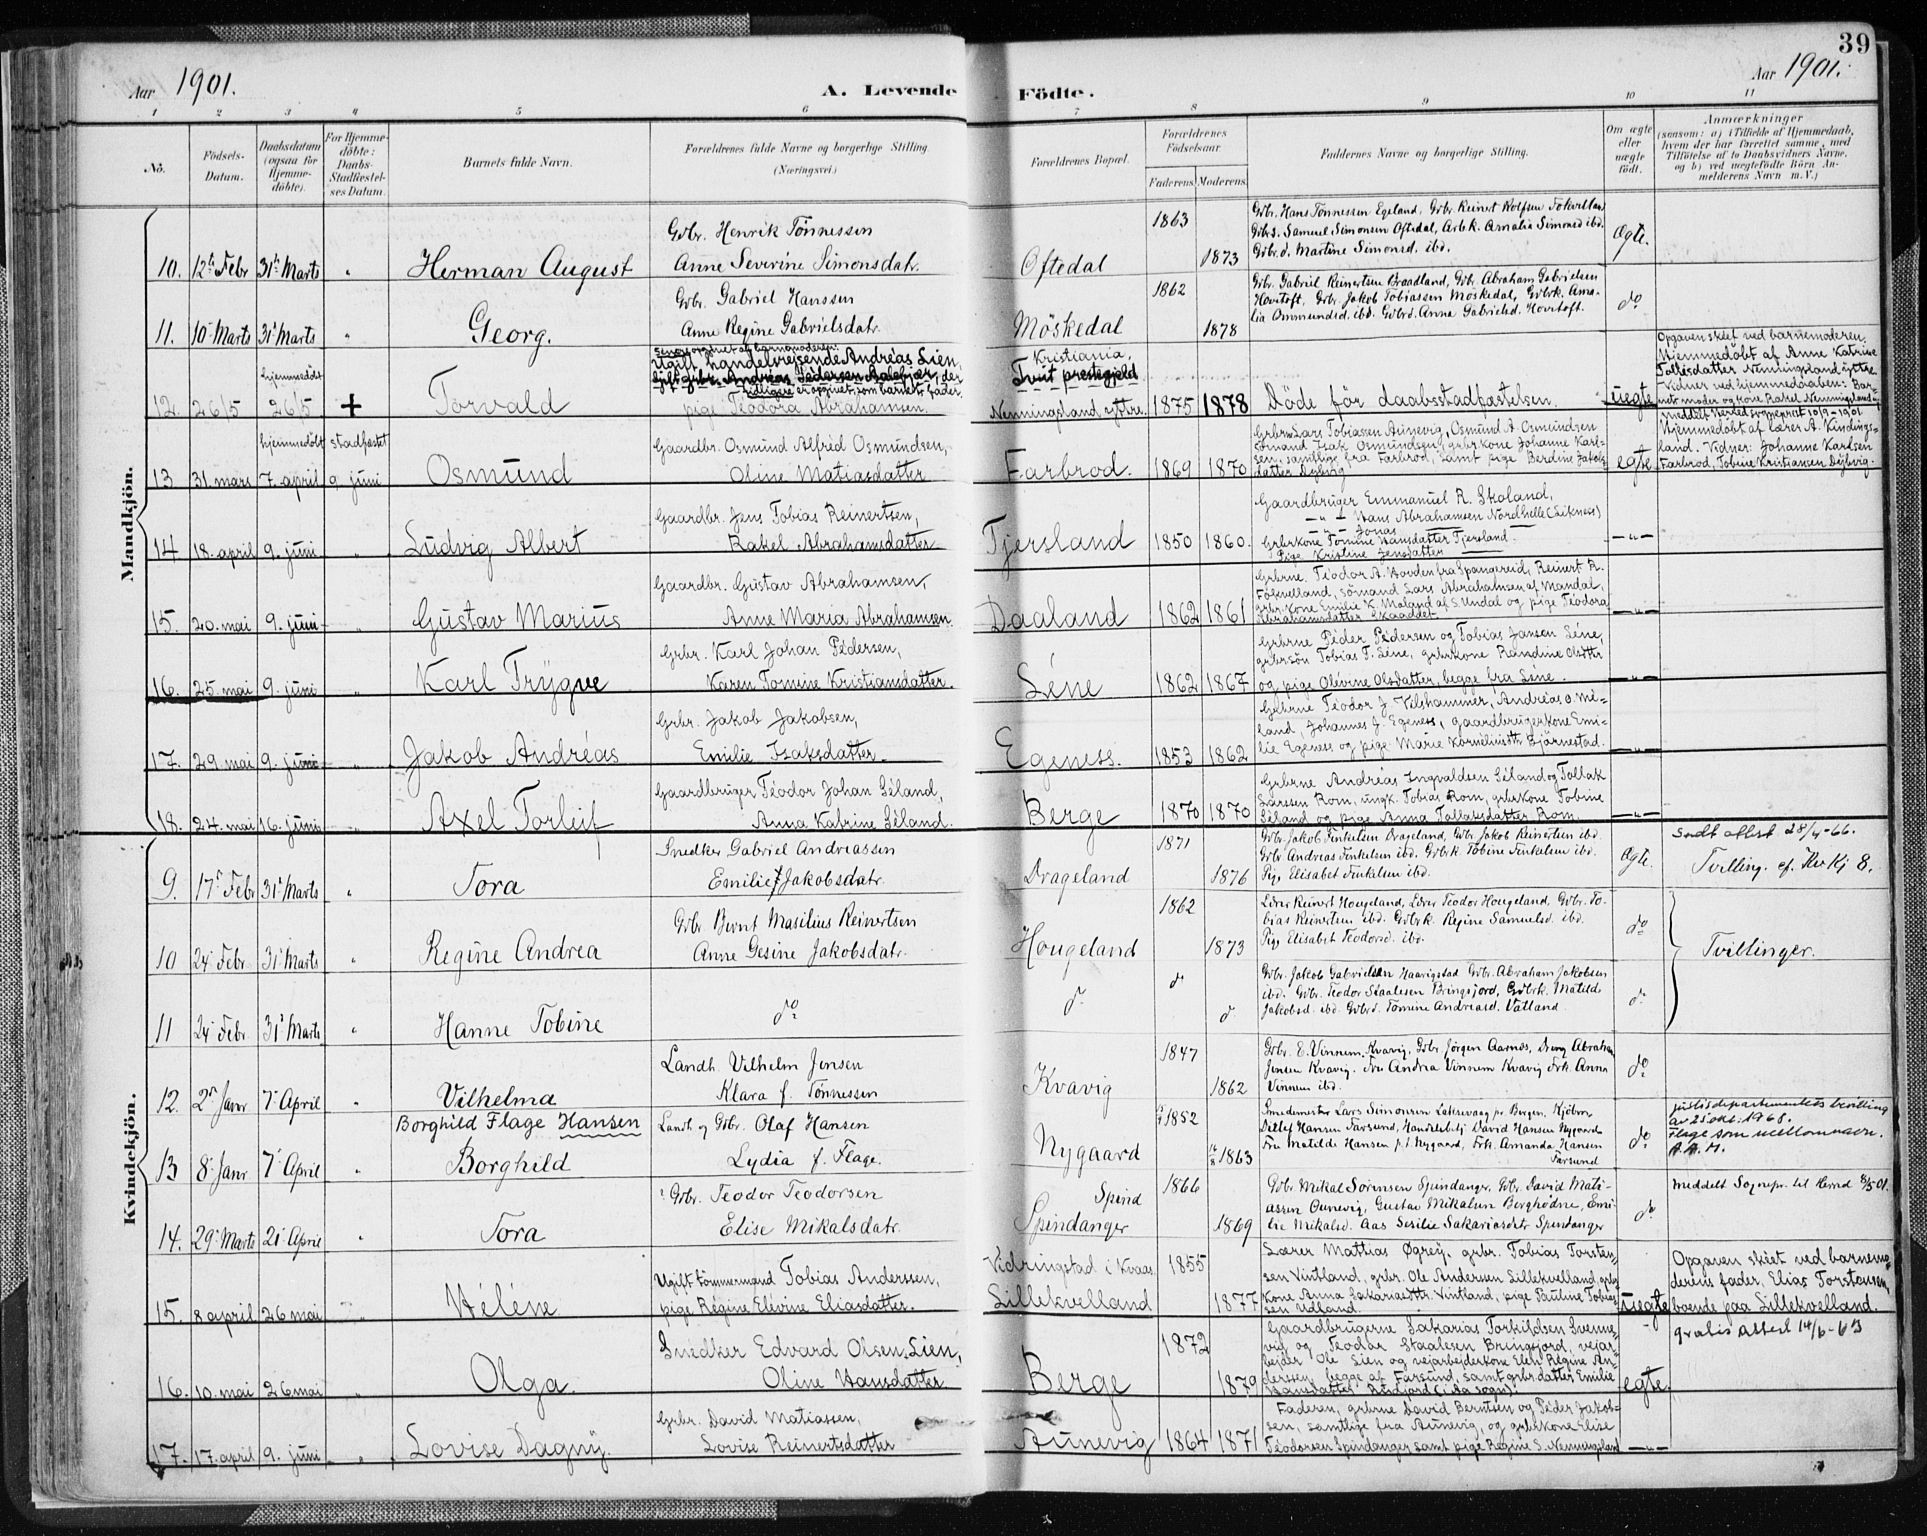 39
Aar 1901.
A. Levende Födte.
Aar 1901.
1 2 3 4 5 6 7 8 9 10 11
No.
Födsels-Datum.
Daabsdatum (ogsaa for Hjemmedöbte).
For Hjemmedöbte: Daabs-Stadfæstelses Datum.
Barnets fulde Navn.
Forældrenes fulde Navne og borgerlige Stilling.
(Næringsvei.)
Forældrenes Bopæl.
Forældrenes Födselsaar.
Faderens. Moderens.
Faddernes Navne og borgerlige Stilling.
Om ægte eller uægte födt.
Anmærkninger
(saasom: a) i Tilfælde af Hjemmedaab, hvem der har forrettet samme, med Tilföielse af to Daabsvidners Navne, og b) ved uægtefödte Börn Anmelderens Navn m. V.)
Mandkjön.
10. 12te Febr 31te Marts " Herman August
Gbr. Henrik Tönnessen
Anne Severine Simonsdatr.
Oftedal 1863 1873
Gbr. Hans Tönnessen Egeland, Gbr. Reinert Rolfsen
Gbrs. Samuel Simonsen Oftedal, Arbk. Amalia Simonsd ibd.
Gbrd. Martine Simonsd. ibd.
Ægte.
11. 10 Marts 31 Marts " Georg.
Gbr. Gabriel Hanssen
Anne Regine Gabrielsdatr.
Möskedal 1862 1878
Gbr. Gabriel Reinertsen Braadland, Gbr. Abraham Gabrielsen
Hovitoft, Gbr. Jakob Tobiassen Möskedal, Gbrk. Ama-
lia Ommundsd. ibd. Gbrd. Anna Gabrielsd. Hovitoft.
do
12. 26/5 hjemmedöbt 26/5 + Torvald
Senere opgivet af barnemoderen:
Ugift handelsrejsende Andréas Lien,
tidligere er opgivet som barnets fader.
pige Teodora Abrahamsen
Kristiania,
Nenningsland yttre. 1875 1878
Döde för daabsstadfæstelsen.
uegte
Opgaven skéet ved barnemoderen.
Hjemmedöbt af Anne Katrine
Tollisdatter Nenningsland yttre
Vidner ved hjemmedaaben: Bar-
nets moder og kone Rakel Nenningsland
meddelt Herred sogneprest 10/9-1901
13 31. mars hjemmedöbt 7. april stadfæstet 9 juni Osmund
Gaardbr. Osmund Alfred Osmundsen,
Oline Matiasdatter
Farbrod. 1869 1870
Grbrne Lars Tobiassen Aunevig, Osmund A. Osmundsen
Tönnes Isak Osmundsen, grbrkone Johanne Karl-
sen, samtlige fra Farbrod, samt pige Berdine Jakobs-
datter Dybvig
egte
Hjemmedöbt af lærer A. Kindings-
land. Vidner: Johanne Karlsen
Farbrod, Tobine Kristiansen Dybvig.
14 18. april 9. juni " Ludvig Albert
Gaardbr. Jens Tobias Reinertsen,
Rakel Abrahamsdatter
Tjersland 1850 1860.
Gaardbruger Emmanuel R. Skoland,
— " — Hans Abrahamsen Nordhelle (Liknes)
— " — Jonas —
Grbrkone Tomine Hansdatter Tjersland.
Pige Kristine Jensdatter —
— " —
15. 20. mai 9. juni " Gustav Marius
Gaardbr. Gustav Abrahamsen,
Anne Maria Abrahamsen.
Daaland 1862 1861
Grbrne. Teodor A. Hovden fra Spangereid, Reinert R.
Fokvelland, sömand Lars Abrahamsen af Mandal,
grbr. kone Emilie K. Moland af S. Undal og pige Téodora
Abrahamsdatter Skaaddel.
— " —
16. 25. mai 9. juni " Karl Trygve
Grbr. Karl Johan Pédersen,
Karen Tomine Kristiansdatter.
Séne 1862 1867
Grbrne Péder Pédersen og Tobias Jansen Séne,
grbrsön Tobias T. Séne, grbrkone Randine Olsdtter
og pige Olevine Olsdatter, begge fra Séne.
— " —
17. 29 mai 9. juni " Jakob Andréas
Grbr. Jakob Jakobsen,
Emilie Isaksdatter.
Egeness. 1853 1862
Grbrne Téodor J Vilshammer, Andréas O. Mé-
land, Johannes J. Egeness, gaardbrugerkone Emi-
lie Egeness og pige Marie Kornéliusdtr Bjärnestad.
— " —
18. 24. mai 16. juni " Axel Torleif
Gaardbruger Téodor Johan Séland,
Anna Katrine Séland.
Berge 1870 1870
Grbrne Andréas Ingvaldsen Séland og Tollak
Larssen Rom, ungk. Tobias Rom, grbrkone Tobine
Séland og pige Anna Tollaksdatter Rom.
— " —
Kvindekjön.
9. 17de Febr 31te Marts " Tora
Snedker Gabriel Andreassen
Emilie f. Jakobsdatr.
Drageland 1871 1876
Gbr. Jakob Finkelsen Drageland, Gbr Jakob Reinertsen ibd.
Gbr. Andreas Finkelsen ibd. Gbrk. Tobine Finkelsen ibd.
Pige Elisabet Finkelsen ibd.
Ægte.
sendt attest 28/4-66.
Tvilling. cf. Kvkj 8.
10 24 Febr. 31 Marts " Regine Andrea
Gbr. Bernt Masilius Reinertsen
Anne Gesine Jakobsdatr.
Hougeland 1862 1873
Lærer Reinert Hougeland, Lærer Teodor Hougeland, Gbr. To-
bias Reinertsen ibd. Gbrk. Regine Samuelsd. ibd.
Pige Elisabet Teodorsd. ibd.
do
Tvillinger.
11 24 Febr. 31 Marts " Hanne Tobine
do
do do do
Gbr. Jakob Gabrielsen Haarigstad Gbr. Abraham Jakobsen
ibd. Gbr. Teodor Staalesen Bringsjord, Gbrk. Matilde
Jakobsd. ibd. Gbrd. Tomine Andreasd. Vatland
do
12. 2 Janr 7 April " Vilhelma
Landh. Vilhelm Jensen
Klara f. Tönnessen
Kvavig 1847 1862
Gbr. E. Vinnem Kvavig, Gbr Jörgen Aarnes, Dreng Abraham
Jensen Kvavig. Fru Andrea Vinnem Kvavig Frk. Anna
Vinnem ibd.
do
Borghild Flage Hansen
13 8 Janr 7 April Borghild
Landh. og Gbr. Olaf Hansen
Lydia f. Flage.
Nygaard 1852 1863
Smedemester Lars Simonsen Laksevaag pr. Bergen. Kjöbm.
Ditlef Hansen Farsund, Handelsbtj David Hansen Nygaard
Fru Matilde Hansen p.t. Nygaard, Frk. Amanda Hansen
Farsund
do
justisdepartementets bevilling
av 25 okt. 1968.
Flage som mellomnavn.
A. A. H.
14. 29 Marts 21 April " Tora
Gbr. Teodor Teodorsen
Elise Mikalsdatr.
Spind
Spindanger 1866 1869
Gbr. Mikal Sörensen Spindanger, Gbr. David Mati-
assen Ounevig, Gustav Mikalsen Berghödne, Emi-
lie Mikalsd. Aas Sesilie Sakariasdatr Spindanger
do
meddelt Sognepr. til Herad 8/5-01.
15 8 april 26 mai " Héléne
Ugift Tömmermand Tobias Anderssen,
pige Régine Elévine Eliasdatter.
Vidringstad i Kvaas
Lillekvelland 1855 1877
Lærer Mattias Øgrey. grbr. Tobias Torsten-
sen Vintland, grbr. Ole Andersen Lillekvelland, grbr
kone Anna Sakariasdtr. Vintland, pige Pauline Tobias-
sen Udland.
uegte
Opgaven skéet ved barnemo-
derens fader, Elias Torstensen,
boende paa Lillekvelland.
16. 10. mai 26 mai " Olga.
Snedker Edvard Olsen Lien,
Oline Hansdatter.
Berge 1872 1879
Gaardbrugerne Sakarias Torkildsen Svenne-
vig og Teodor Staalesen Bringsjord, vejar-
bejder Ole Lien og vejarbejderkone Elen Régine An-
derssen, begge af Farsund, samt grbr.datter Emilie
Hansdatter
egte
gratis attest 14/6-63
17. 17. april 9. juni " Lovise Dagny.
Grbr. David Matiassen,
Lovise Reinertsdatter
Aunevig 1864 1871
Faderen, grbrne David Berntsen og Péder Jakob-
sen, samtlige fra Aunevig, og grbrkone Elise
Téodorsen Spindanger samt pige Régine S. Nenningsland
— " —